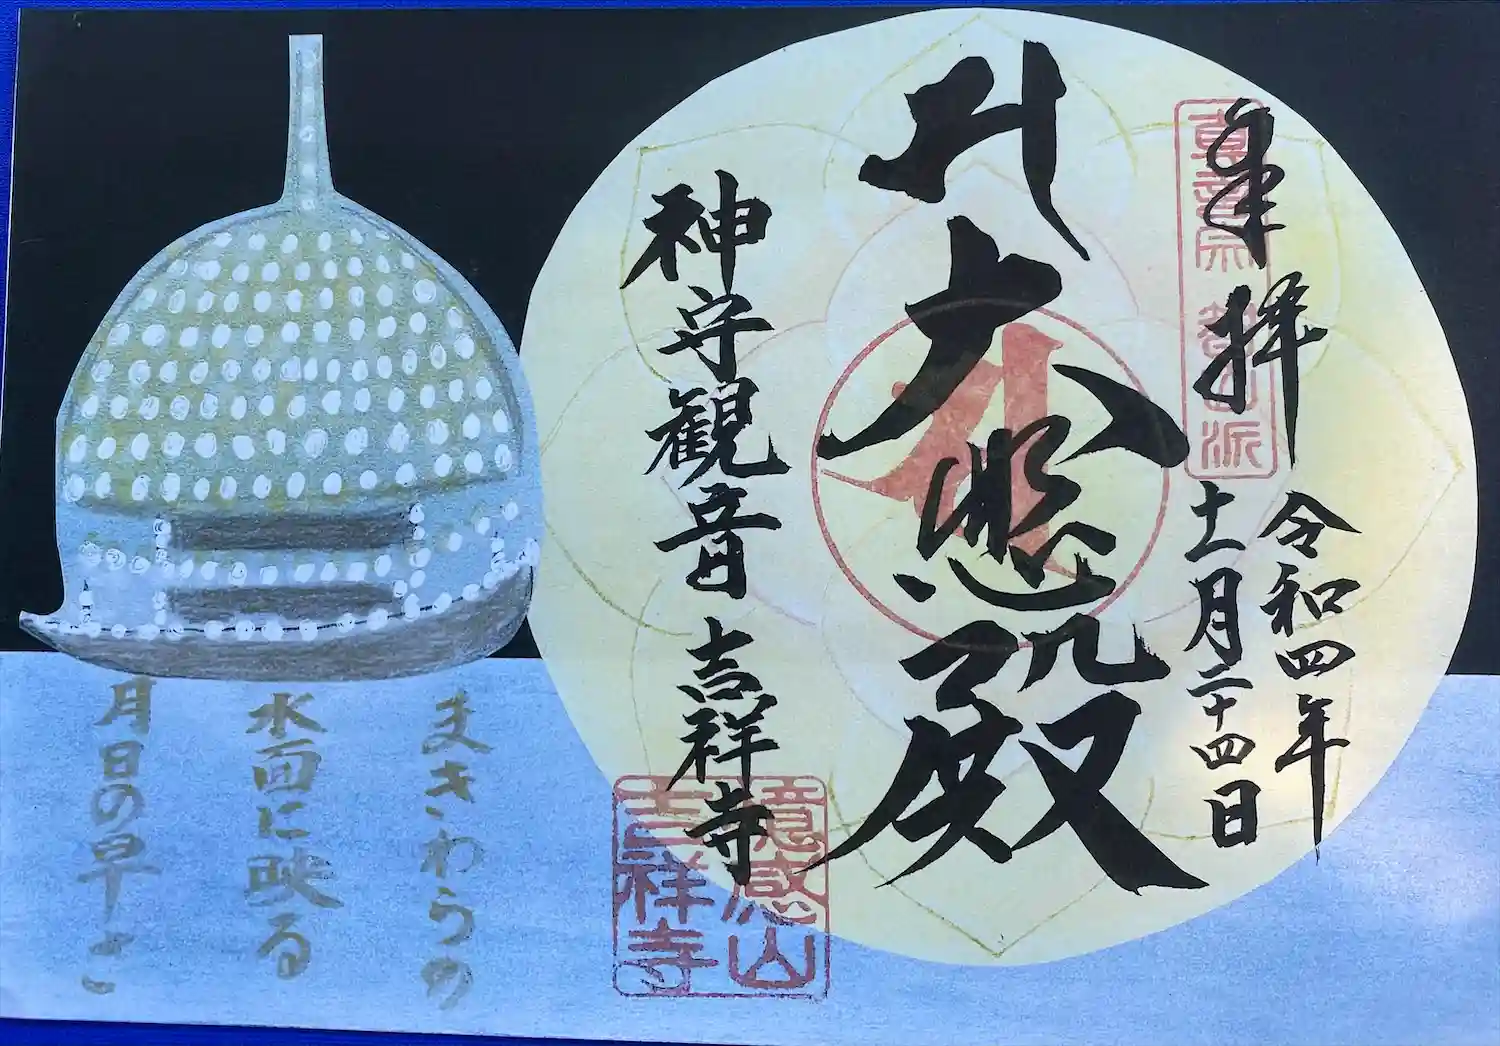 奉拝
真言宗 智山派
令和四年
十一月二十四日
大悲殿
神守観音 吉祥寺
憶感山
吉祥寺
まきわらの
水面に映る
月日の早さ